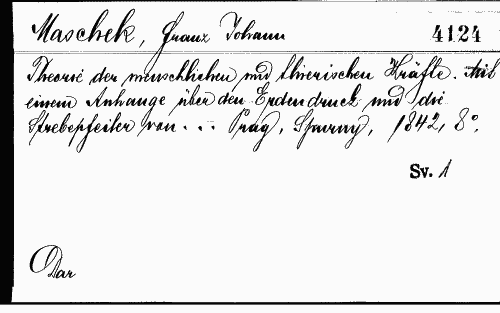 Maschek, Franz Johann 4124
Theorie der menschlichen und thierischen Kräfte. Mit
einem Anhange über den Erdendruck und die
Strebepfeiler von ... Prag, Spurny, 1842, 8°.
Sv. 1
Dar